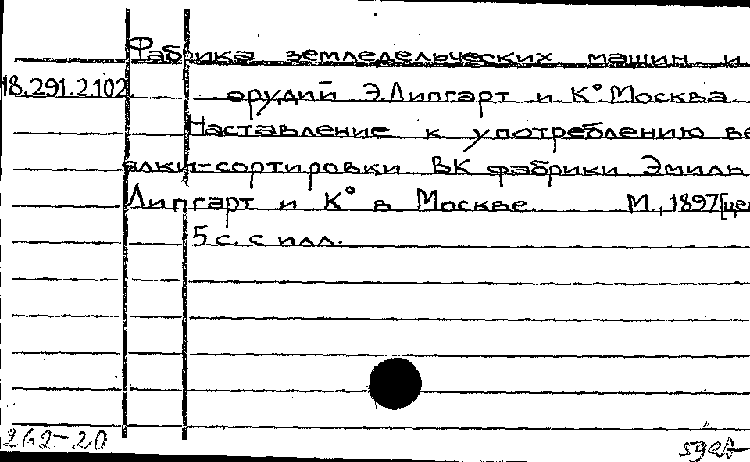 Фабрика земледельческих машин и
18.291.2.102 орудий Э.Липгарт и К° Москва
Наставление к употреблению ве
ялки-сортировки ВК фабрики Эмиль
Липгарт и К° в Москве. М., 1897 [цен
5 с. с илл.
262-20